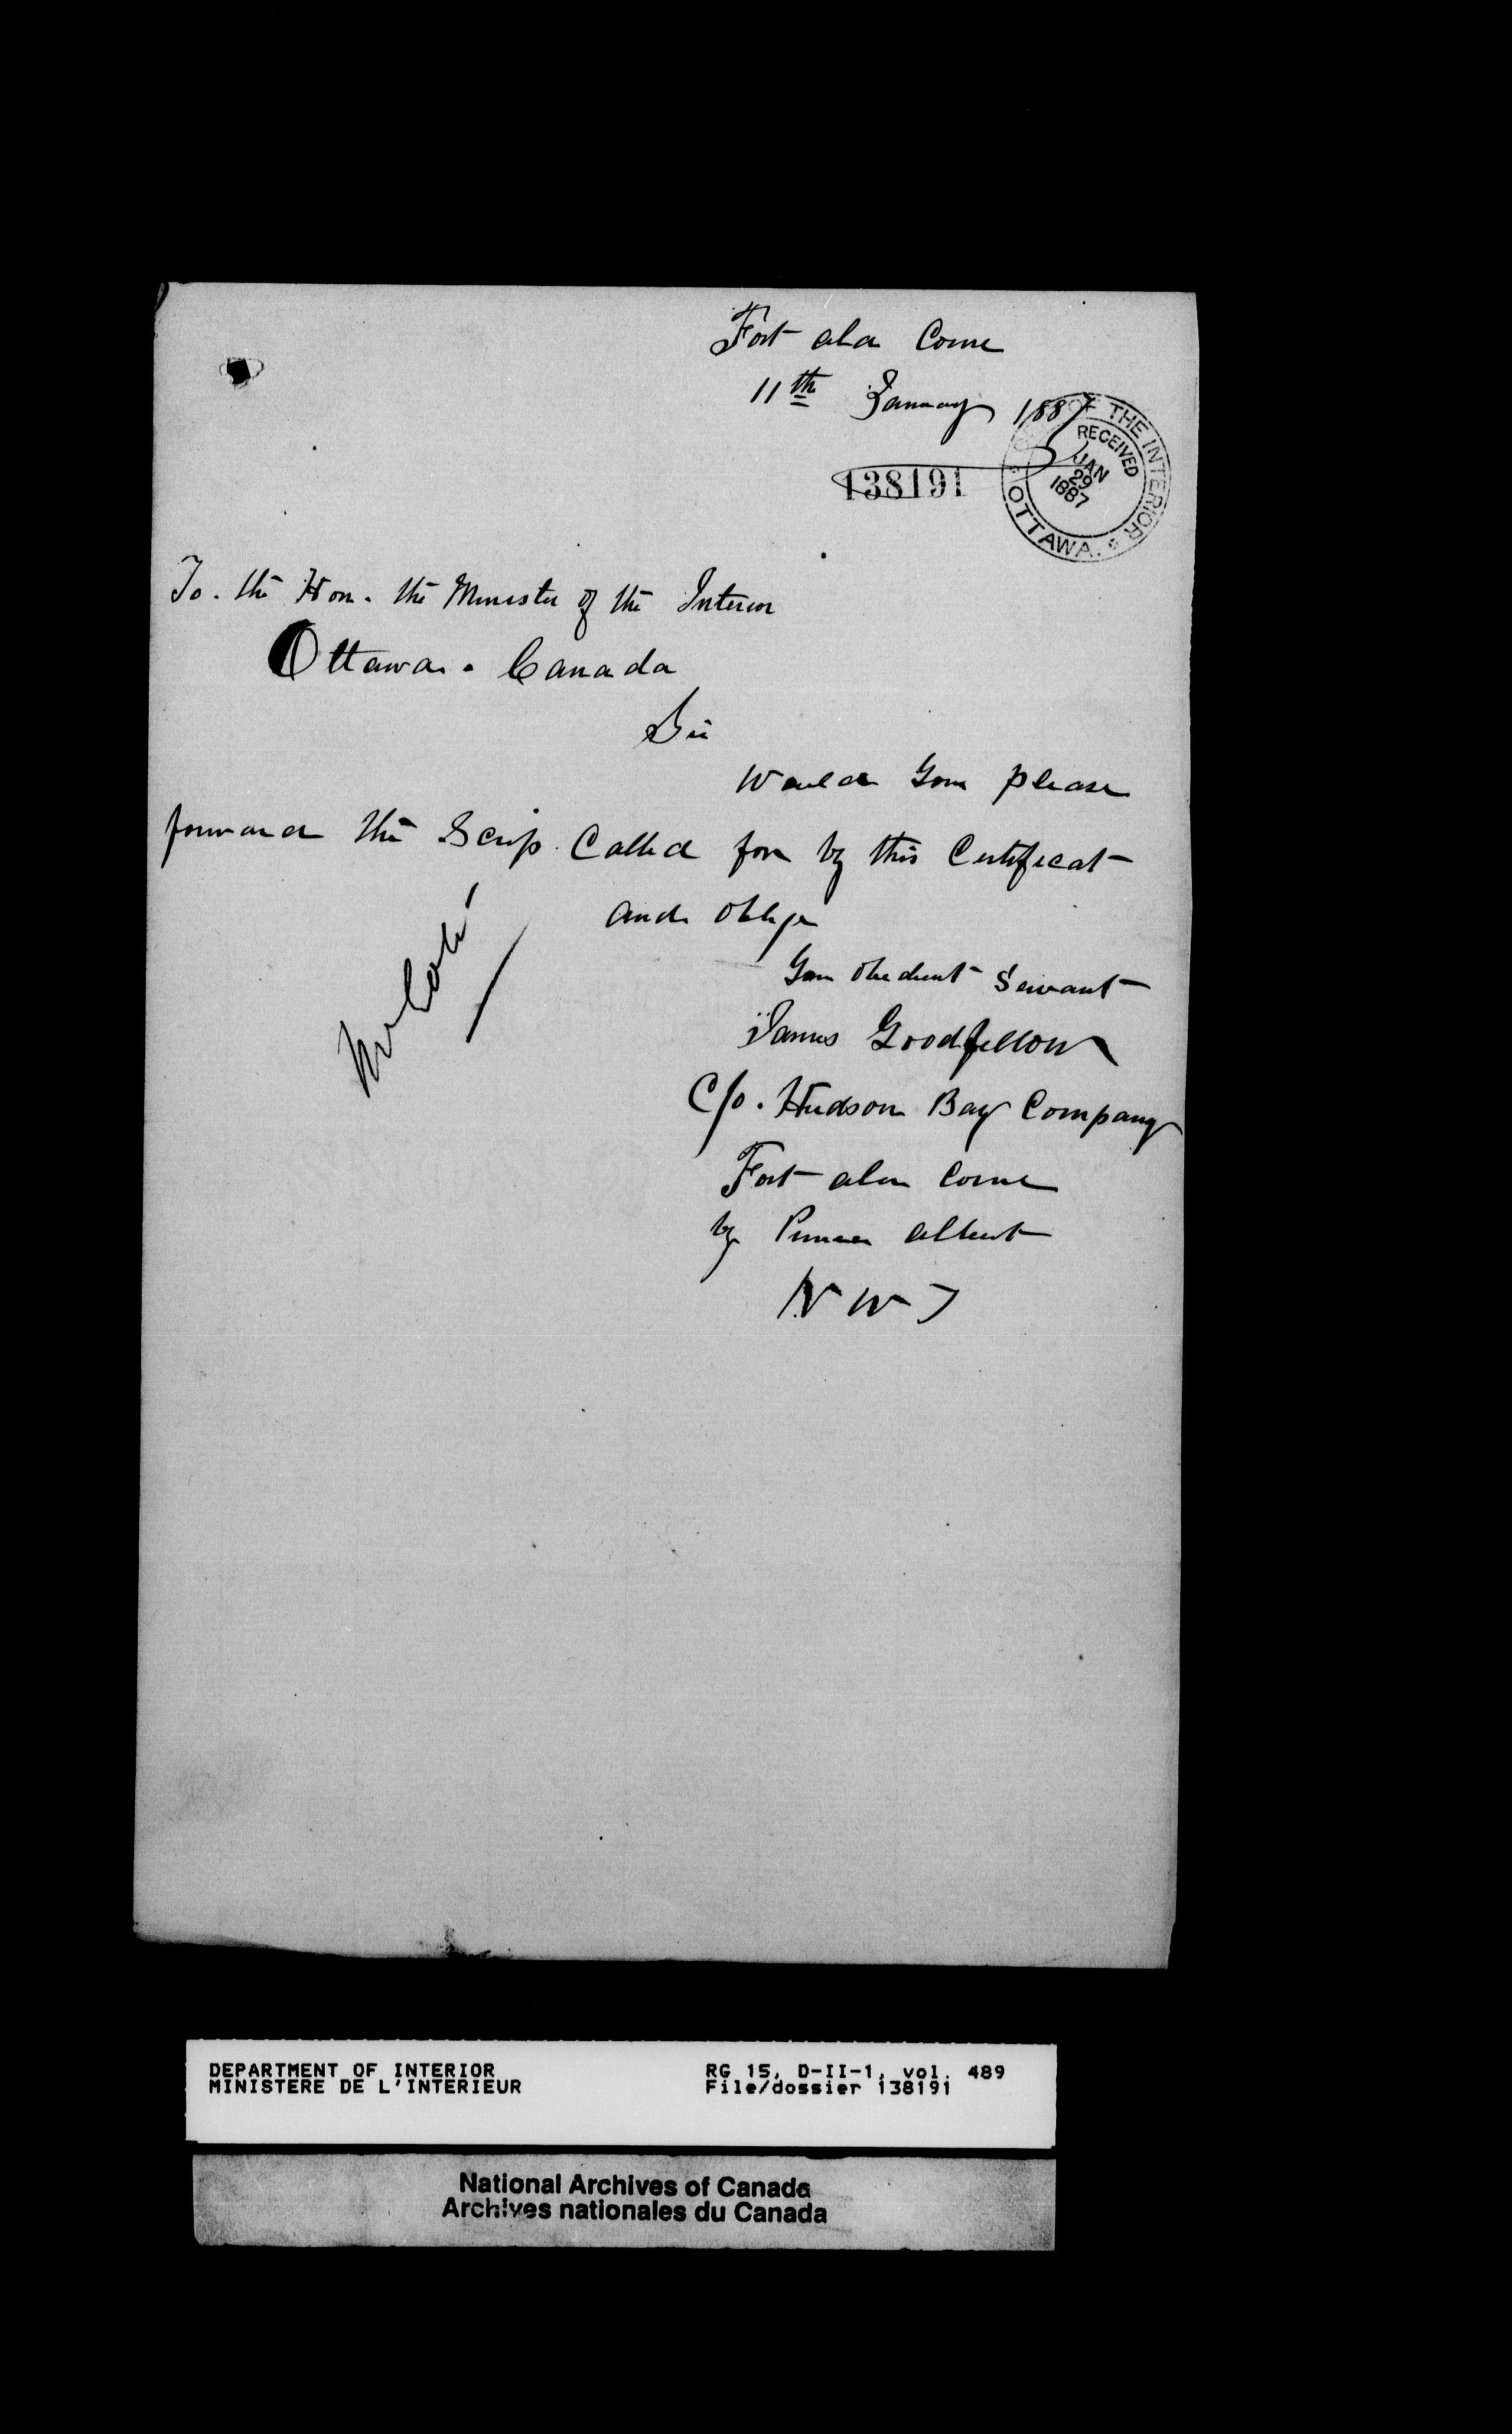 Fort ala Corne
11th January 1887
138191
DEPT. OF THE INTERIOR
RECEIVED
JAN
29
1887
OTTAWA.
To. the Hon. the Minister of the Interior
Ottawa. Canada
Sir
Would You please
forward the Scrip Called for by this Certificat
and oblige
Your obedient Servant
James Goodfellow
C/o. Hudson Bay Company
Fort ala Corne
by Prince Albert
N W T
DEPARTMENT OF INTERIOR RG 15, D-II-1, vol. 489
MINISTERE DE L'INTERIEUR File/dossier 138191
National Archives of Canada
Archives nationales du Canada